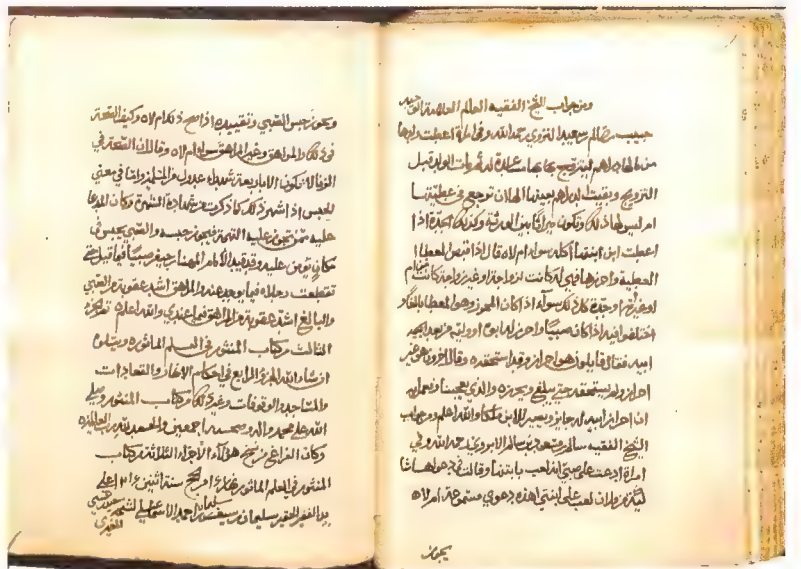 ومن جواب الشيخ الفقيه العالم العلامة
حبيب بن سالم بن سعيد رحمه الله وفي امرأة اعطت ولدها
من مالها دراهم ليتزوج بها مساعدة له ثم مات الولد قبل
التزويج وبقيت الدراهم بعينها الها ان ترجع في عطيتها
ام ليس لها ذلك وتكون ميراثا بين الورثة وكذلك الجدة اذا
اعطت ابن ابنتها أكله سواء ام لا قال اذا قبض المعطا
العطية واحرزها فهي له كانت لزواجة او غير زواجة كانت من ام
او غير ام او جدة كل ذلك سواء اذا كان المحرز وهو المعطا بالغا و
اختلفوا فيه اذا كان صبيا واحرز له ابوه او وليه من بعد
ابيه فقال قايلون هو احراز وقد استحقه وقال اخرون هو غير
احراز ولم يستحقه حتى يبلغ ويحرزه والذي يعجبنا ونعمل به
ان احراز ابيه له جايز ويصير للابن ملكا والله اعلم ومن جواب
الشيخ الفقيه سالم بن رحمه الله وفي
امراة ادعت على صبي انه لعب بابنتها وقالت في دعواها
ان لعب على ابنتي اهذه دعوي مسموعة ام لا
يجوز
ويجوز حبس الصبي وتقييده اذا صح ذلك ام لا وكيف الصحة
في ذلك والمراهق وغير المراهق سواء ام لا وقال ان الصحة في
الزنا لا تكون الا باربعة شهداء عدول واما في معني
الحبس اذا شهر ذلك كما ذكرت من شهادة الشهرة وكان المدعا
عليه ممن تجوز عليه التهمة فيجوز حبسه والصبي يحبس في
مكان يومن عليه وقد قيد الامام المهنا بن جيفر صبيا فيما قيل حتي
تقطعت رجلاه فيما يوجد عنه والمراهق اشد عقوبة من الصبي
والبالغ اشد عقوبة من المراهق فيما عندي والله اعلم تم الجزء
الثالث من كتاب المنثور في العلم الماثور ويتلوه
ان شاء الله الجزء الرابع في احكام والتعادات
والمساجد والوقوفات وغير ذلك من كتاب المنثور وصلى
الله على محمد واله وصحبه اجمعين والحمد لله رب العالمين
وكان الفراغ من نسخ هؤلاء الأجزاء الثلاثة من كتاب
المنثور في العلم الماثور سنة اثنين
بيد الفقير الحقير سليمان بن